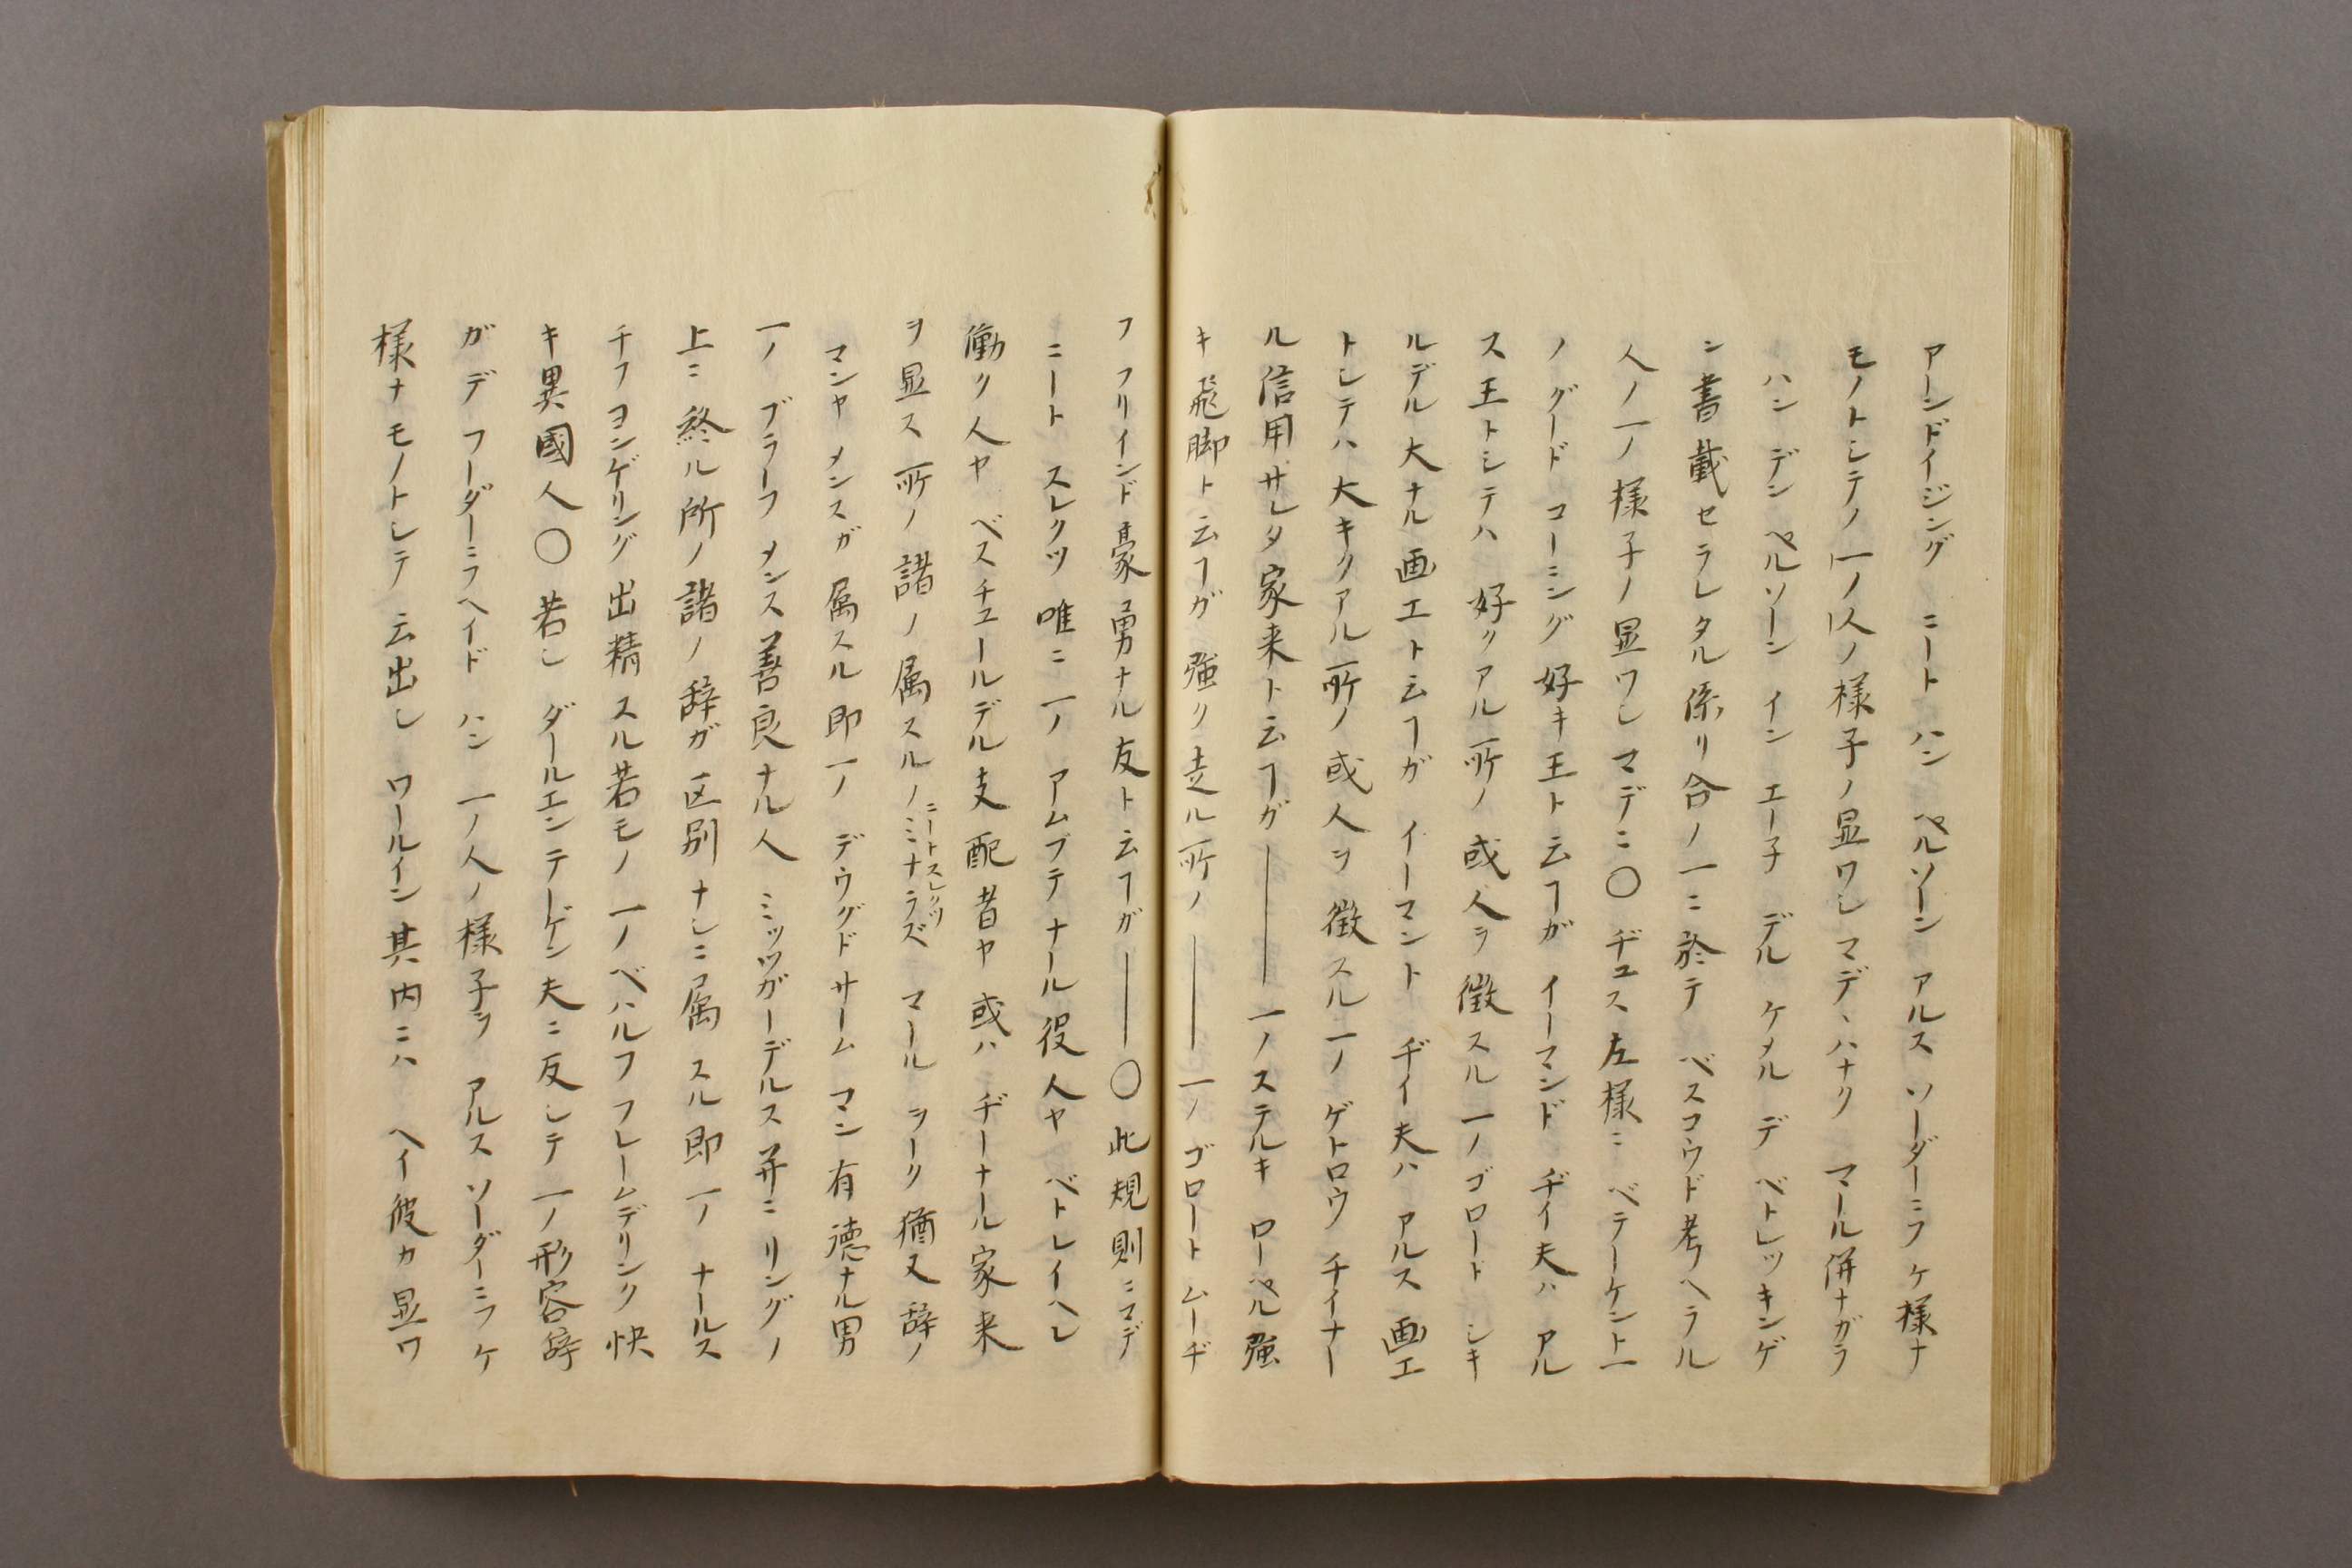 アーンドイジング ニート ハン ペルソーン アルス ソーダーニフケ様ナ
モノトシテノ一ノ人ノ様子ノ显ワシ マデヽハナク マール併ナガラ
ハン デン ペルソーン イン エー子 デル ケメル デ ベトレッキンゲ
ン書載セラレタル係リ合ノ一ニ於テ ベスコウド考ヘラル
人ノ一ノ様子ノ显ワシマデニ〇 ヂュス左様ニ ベテーケント一
ノ グード コーニング 好キ王ト云フガ イーマンド ヂイ夫ハ アル
ス王トシテハ 好クアル所ノ 或人ヲ徴スル一ノゴロード シキ
ルデル 大ナル画エト云フガ イーマント ヂイ夫ハ アルス 画エ
トシテハ大キクアル所ノ 或人ヲ徴スル一ノ ゲトロウ ヂイナー
ル信用サレタ家来ト云フガ―――一ノステルキ ローペル強
キ飛脚ト云フガ 強ク走ル所ノ―――一ノゴロート ムーヂ
フ フリインド豪勇ナル友ト云フガ―――〇此規則ニマデ
ニート スレクツ 唯ニ一ノ アムブテナール役人ヤ ベトレイヘレ
働ク人ヤ ベスチュールデル支配者ヤ或ハ ヂーナール家来
ヲ显ス所ノ諸ノ属スルノミナラズ ニートスレクツ マール ヲーク猶又辞ノ
マンヤ メンスガ属スル即一ノ デウグドサーム マン有徳ナル男
一ノ ブラーフ メンス善良ナル人 ミッツガーデルス并ニ リングノ
上ニ終ル所ノ諸ノ辞ガ区別ナシニ属スル即一ノ ナールス
チフヨンゲリング 出精スル若モノ 一ノベハルフ フレームデリンク快
キ異國人〇若シ ダールエンテーゲン夫ニ反シテ一ノ形容辞
ガ デ フーダーニフヘイド ハン 一ノ人ノ様子ヲ アルス ソーダーニフケ
様ナモノトシテ云出シ ワールイン其内ニハ ヘイ彼カ显ワ